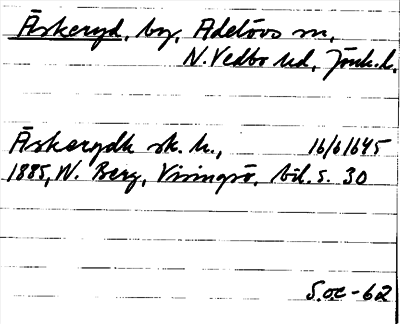 Äskeryd, by, Adelövs sn,
N. Vedbo hd, Jönk.l.
Äskerydh sk. h., 16/6 1645
1885, W. Berg, Visingsö, bil. s. 30
S.oc-62